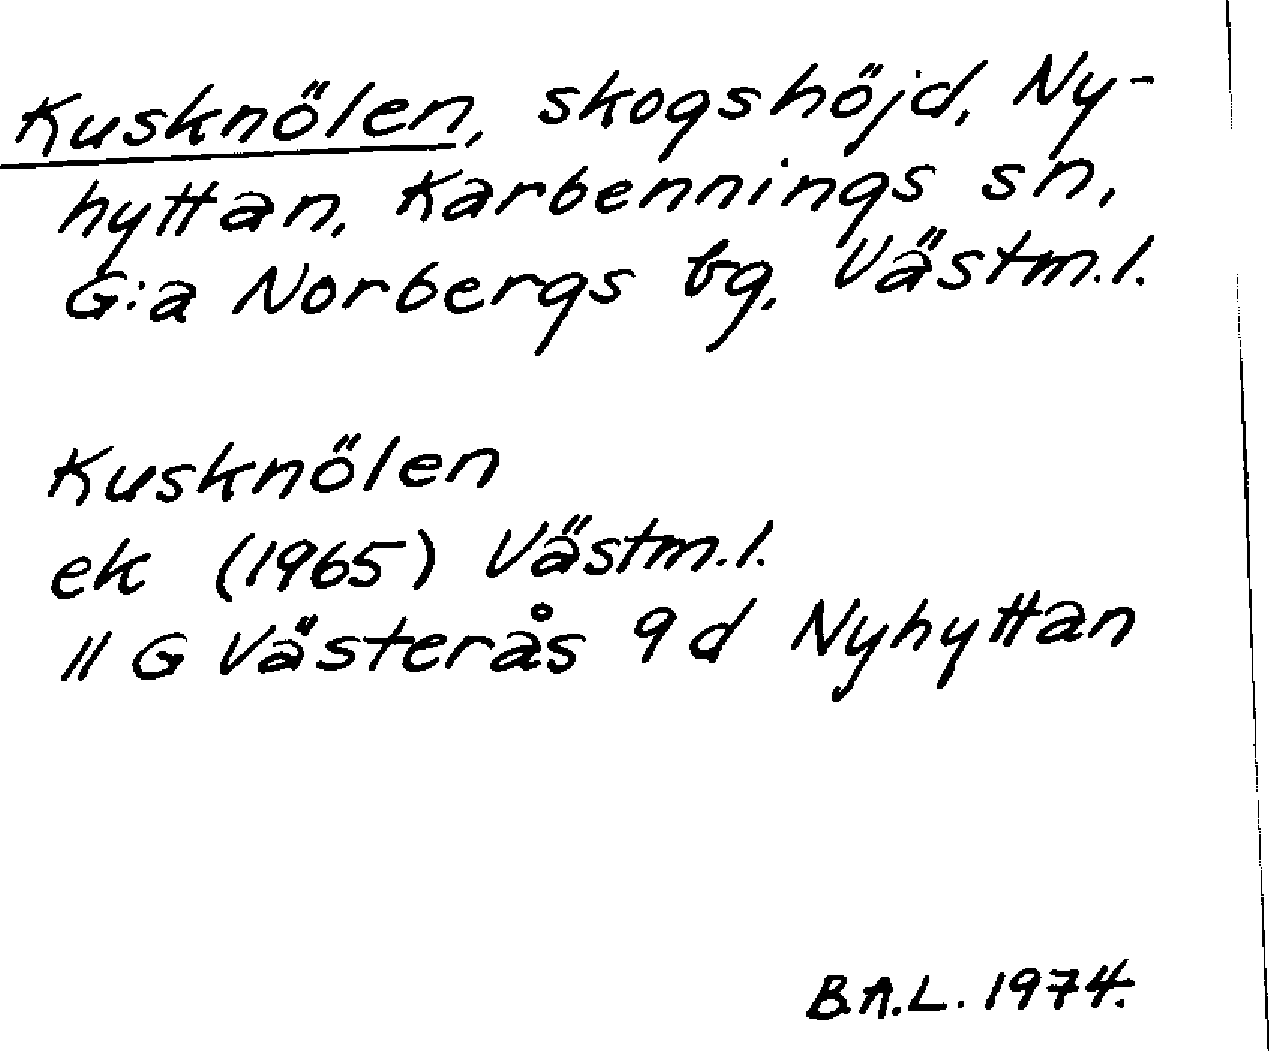 Kusknölen, skogshöjd, Ny-
hyttan, Karbennings sn,
G:a Norbergs bg, Västm.l.
Kusknölen
ek (1965) Västm.l.
11 G Västerås 9 d Nyhyttan
B.A.L. 1974.